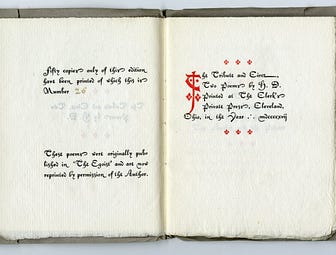 Fifty copies only of this edition
have been printed of which this is
Number 26
These poems were originally pub-
lished in "The Egoist" and are now
reprinted by permission of the Author.
The Tribute and Circe,
Two Poems by H. D.
Printed at The Clerk's
Private Press, Cleveland,
Ohio, in the Year